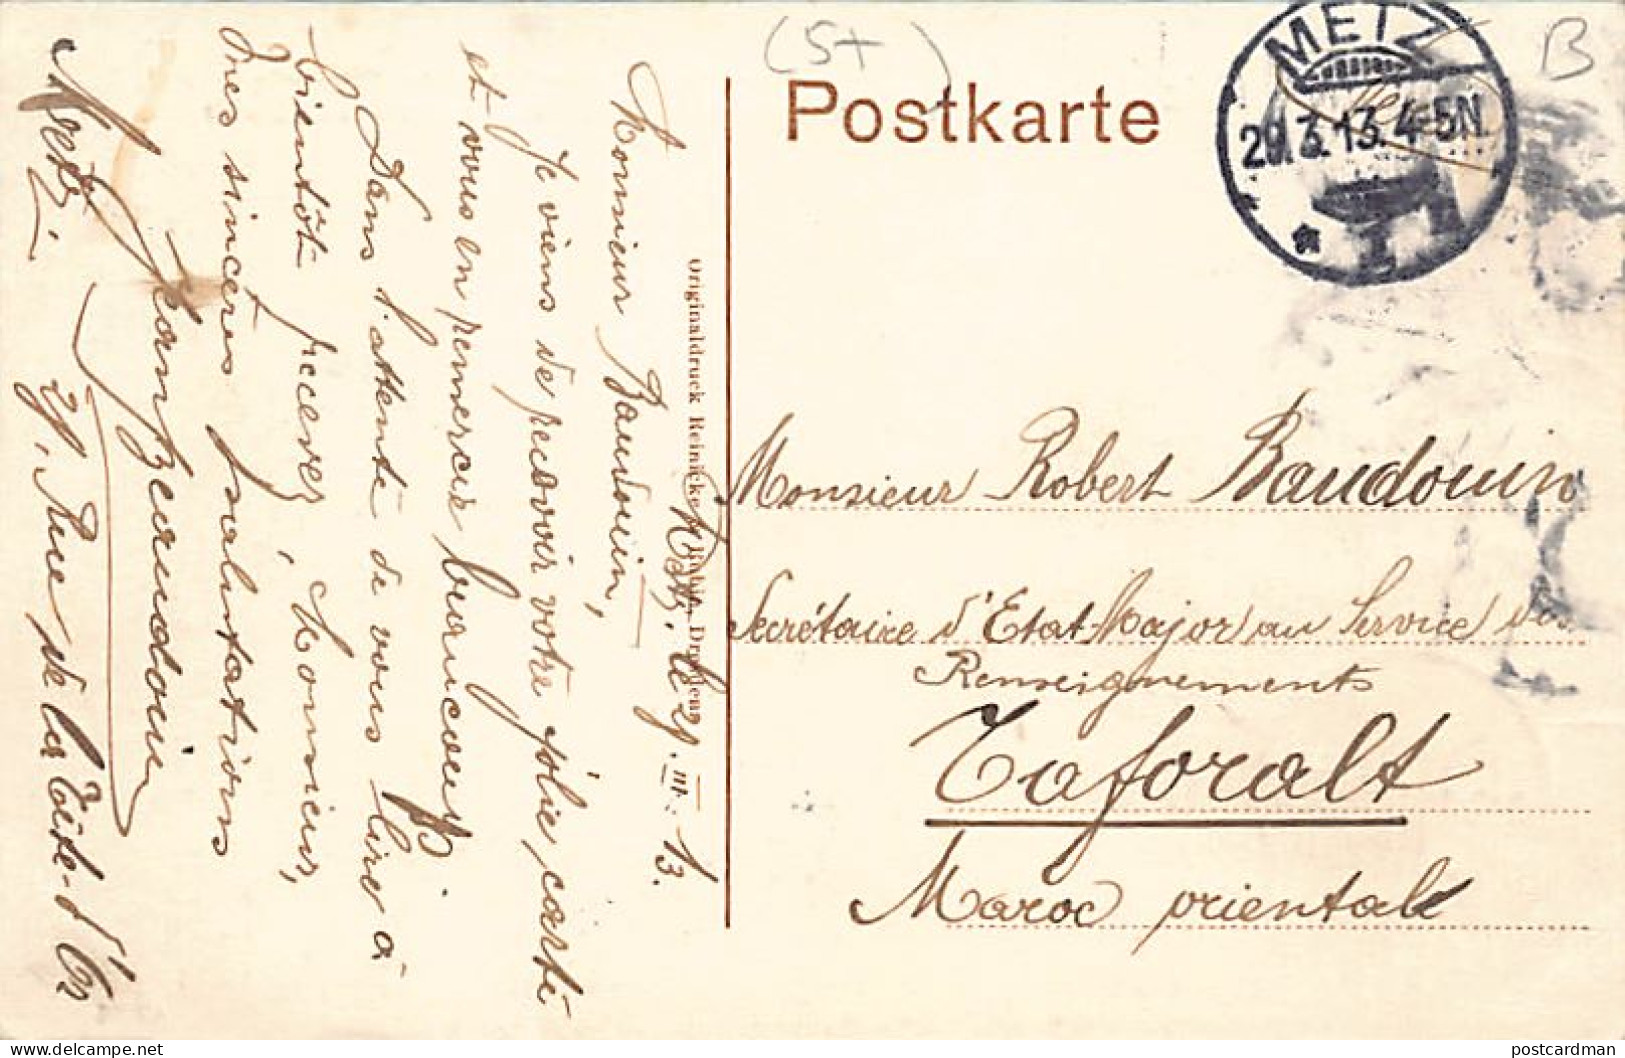 (5+ )
B
Postkarte
METZ
29.3.13.4-5N.
Originaldruck Reinicke & Rubin, Dresden
Metz, le 29.III.13.
Monsieur Baudouin,
Je viens de recevoir votre jolie carte
et vous en remercie beaucoup.
Dans l'attente de vous lire à
bientôt recevez, Monsieur,
mes sincères salutations
Metz.
29, Rue de la Tête-d'Or
Monsieur Robert Baudouin
Secrétaire d'Etat-Major au Service des
Renseignements
Taforalt
Maroc oriental
postcardman